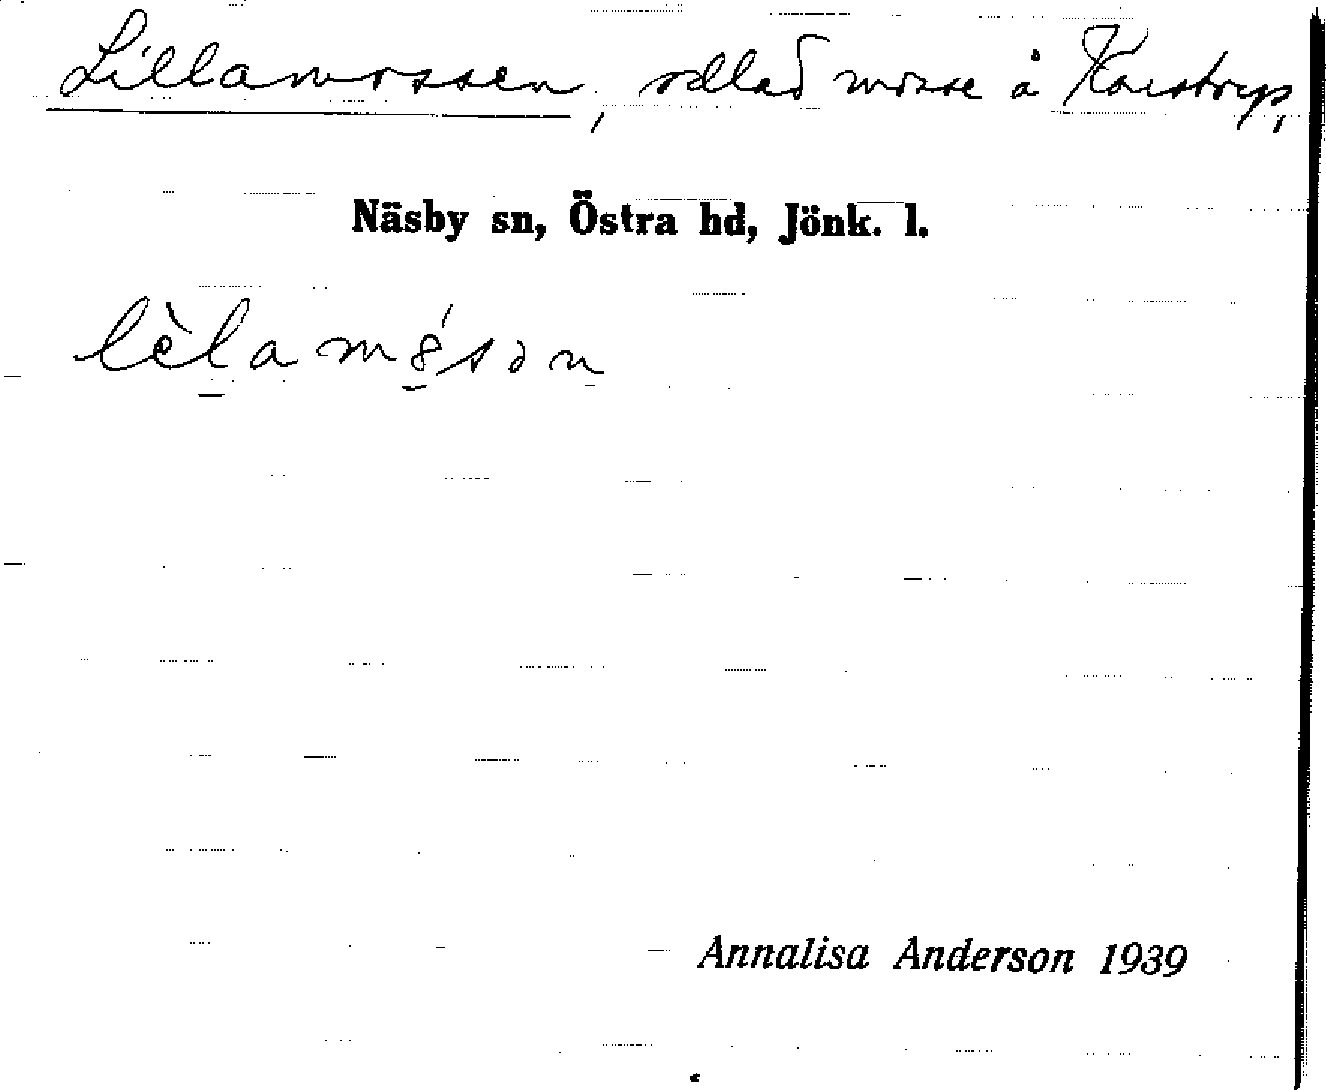 Lillamossen, odlad mosse å Karstorp,
Näsby sn, Östra hd, Jönk. l.
Annalisa Anderson 1939